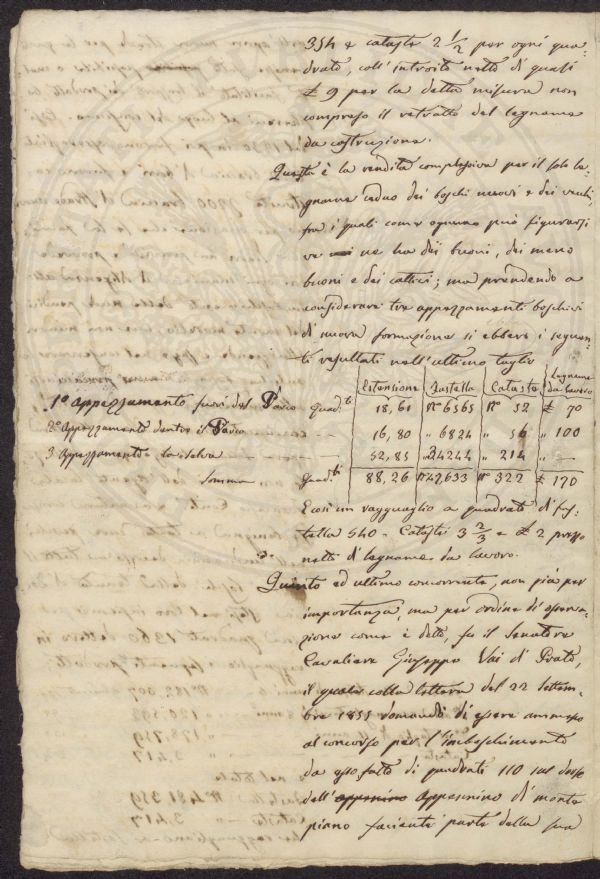 354 e cataste 2 1/2 per ogni qua-
drato, coll'introito netto di quasi
£ 9 per la detta misura non
compreso il retratto del legname
da costruzione.
Questa è la rendita complessiva per il solo le-
gname ceduo dei boschi nuovi e dei vecchi,
fra i quali come ognuno può figurarsi
ve ne ha dei buoni, dei meno
buoni e dei cattivi; ma prendendo a
considerare tre appezzamenti boschivi
di nuova formazione si ebbero i seguen-
ti resultati nell'ultimo taglio
Estensione Fastella Cataste Legname da lavoro
1o Appezzamento fuori del Parco Quad.ti 18,61 No 6565 No 52 £ 70
2o Appezzamento dentro il Parco — — 16,80 " 6824 " 56 " 100
3 Appezzamento La Selva — — 52,85 " 34244 " 214 " —
Somma Quad.ti 88,26 No 47,633 No 322 £ 170
E così un ragguaglio a quadrato di fas-
tella 540 - Cataste 3 2/3 e £ 2 prezzo
netto di legname da lavoro.
Quinto ed ultimo concorrente, non già per
importanza, ma per ordine di osserva-
zione come è detto, fu il Senatore
Cavaliere Giuseppe Vai di Prato,
il quale colla lettera del 22 Settem-
bre 1855 domandò di essere ammesso
al concorso per l'imboschimento
da esso fatto di quadrati 110 sul dorso
dell' appenino Appennino di monte
piano facienti parte della sua